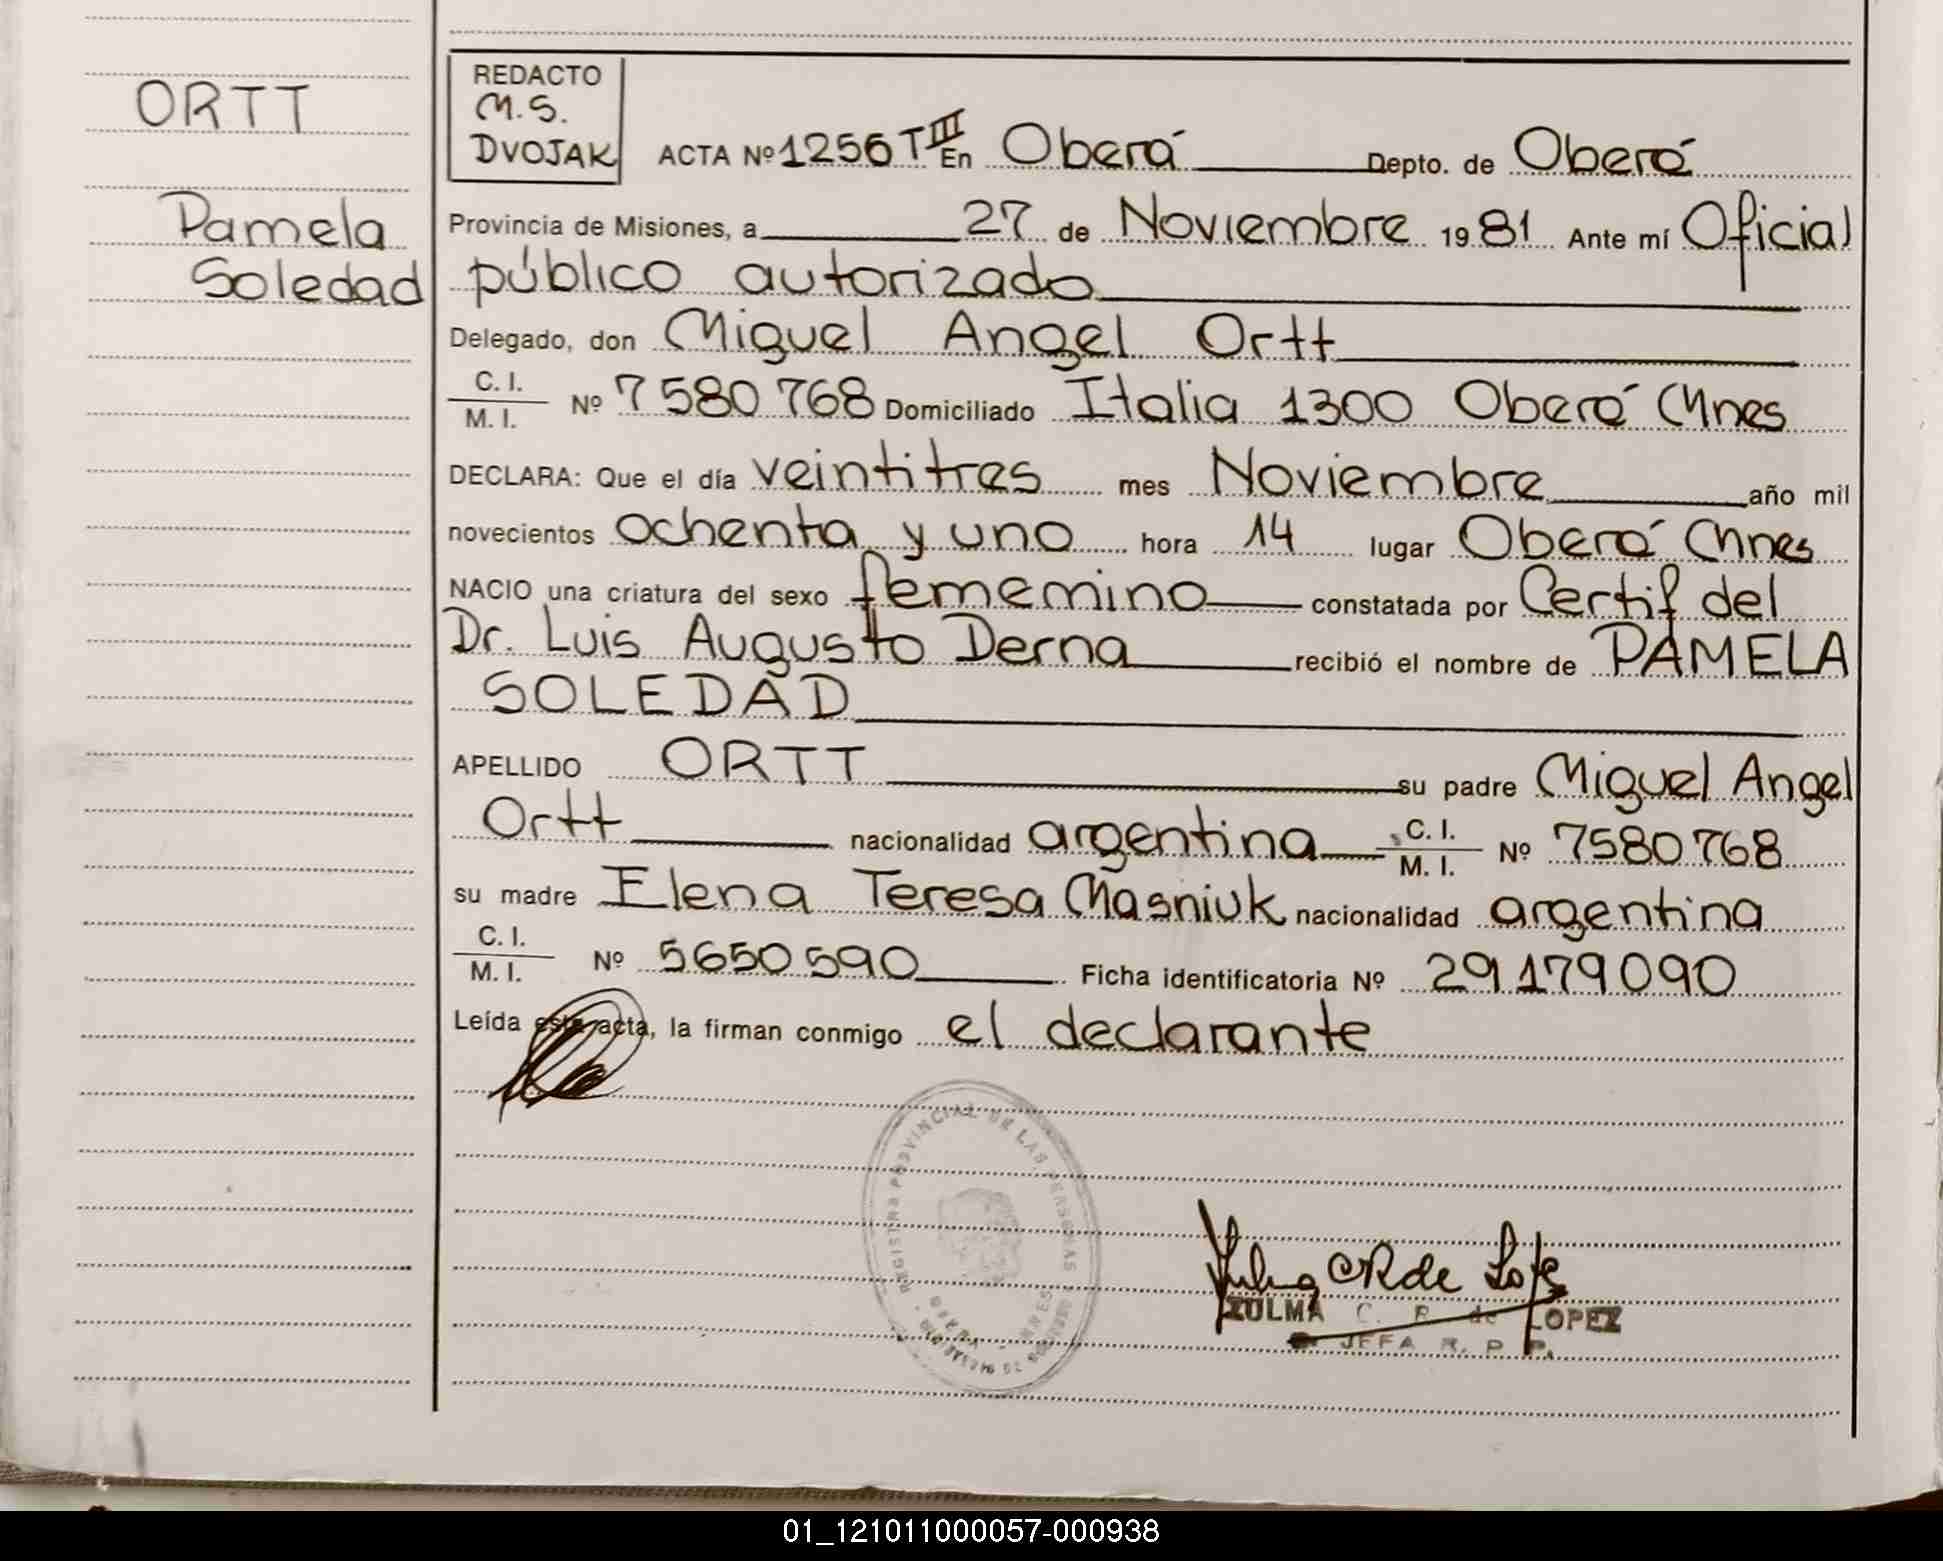 ORTT
Pamela
Soledad
REDACTO
M.S.
DVOJAK
ACTA Nº 1256 T III En Oberá Depto. de Oberá
Provincia de Misiones, a 27 de Noviembre 1981 Ante mí Oficial
público autorizado
Delegado, don Miguel Angel Ortt
C. I.
M. I. Nº 7580768 Domiciliado Italia 1300 Oberá Mnes
DECLARA: Que el día veintitres mes Noviembre año mil
novecientos ochenta y uno hora 14 lugar Oberá Mnes
NACIO una criatura del sexo fememino constatada por Certif del
Dr. Luis Augusto Derna recibió el nombre de PAMELA
SOLEDAD
APELLIDO ORTT su padre Miguel Angel
Ortt nacionalidad argentina C. I. M. I. Nº 7580768
su madre Elena Teresa Masniuk nacionalidad argentina
C. I.
M. I. Nº 5650590 Ficha identificatoria Nº 29179090
Leída esta acta, la firman conmigo el declarante
REGISTRO PROVINCIAL DE LAS PERSONAS
ZULMA C. R. de LOPEZ
JEFA R. P. P.
01_121011000057-000938